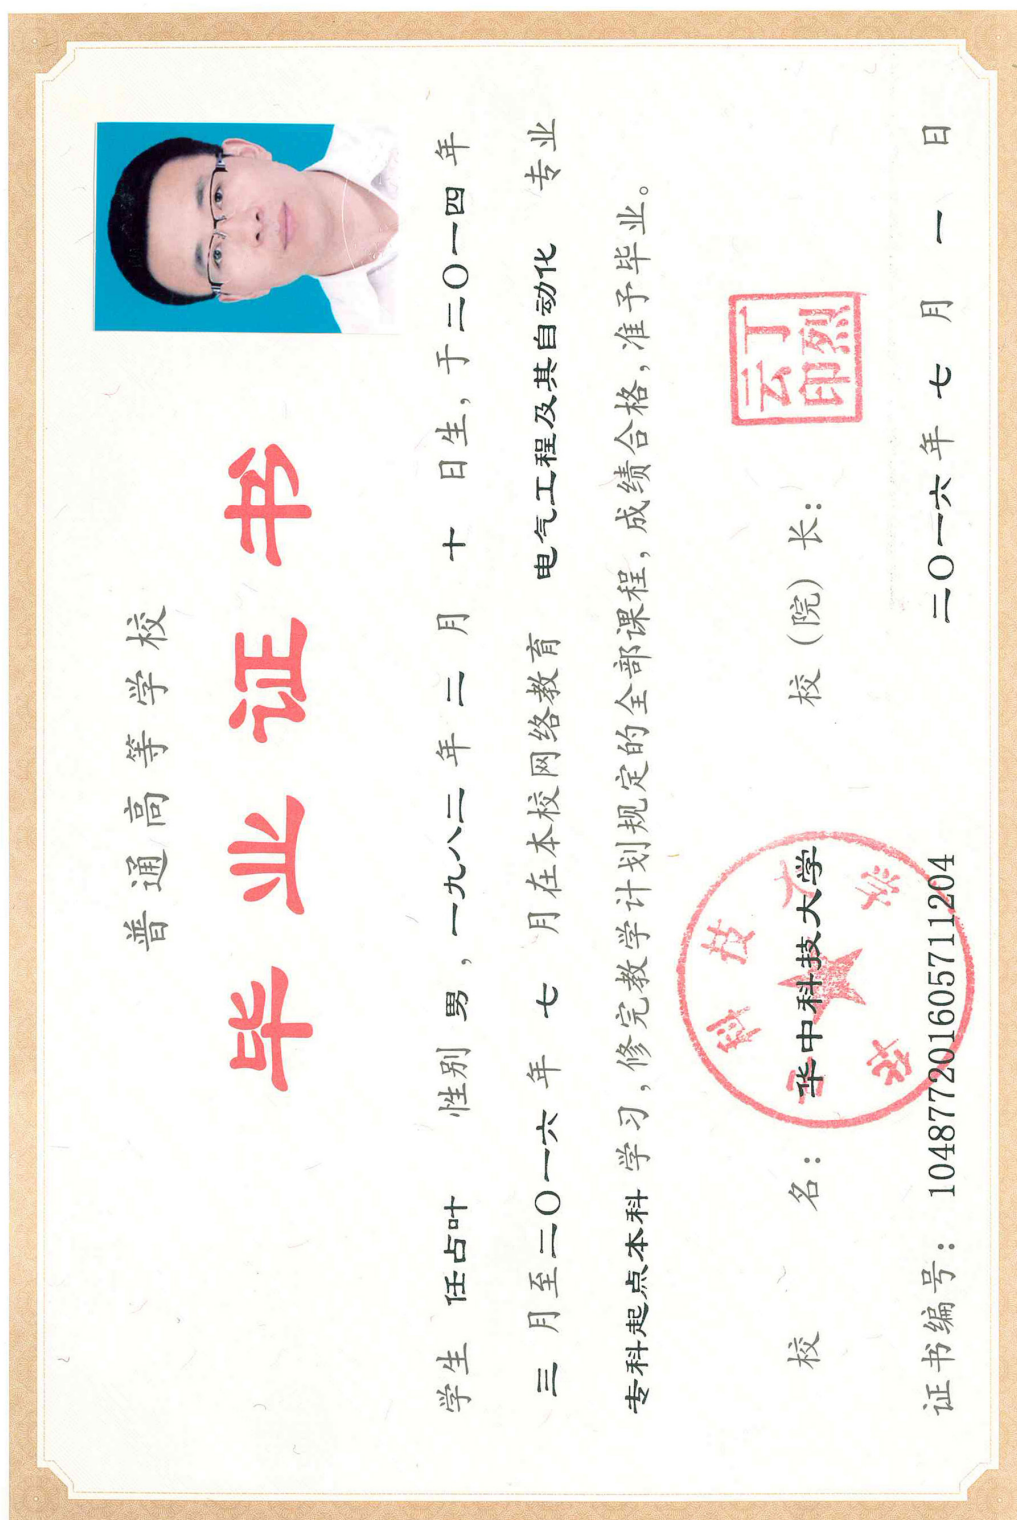 普通高等学校
毕业证书
学生 任占叶 性别 男，一九八二年 二 月 十 日生，于二〇一四 年
三 月至二〇一六 年 七 月在本校网络教育 电气工程及其自动化 专业
专科起点本科 学习，修完教学计划规定的全部课程，成绩合格，准予毕业。
校 名：华中科技大学 校（院）长：
丁烈云印
华中科技大学
证书编号：104877201605711204 二〇一六年 七 月 一 日